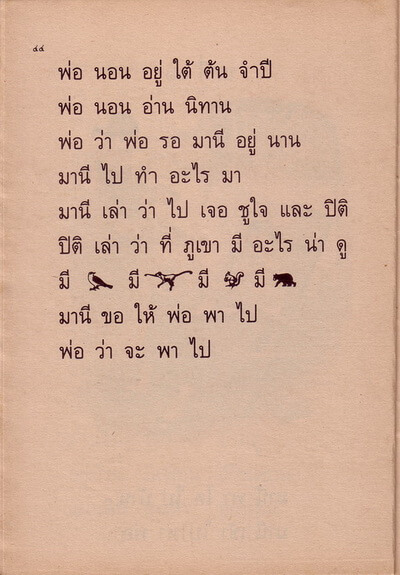 ๔๔
พ่อ นอน อยู่ ใต้ ต้น จำปี
พ่อ นอน อ่าน นิทาน
พ่อ ว่า พ่อ รอ มานี อยู่ นาน
มานี ไป ทำ อะไร มา
มานี เล่า ว่า ไป เจอ ชูใจ และ ปิติ
ปิติ เล่า ว่า ที่ ภูเขา มี อะไร น่า ดู
มี มี มี มี
มานี ขอ ให้ พ่อ พา ไป
พ่อ ว่า จะ พา ไป